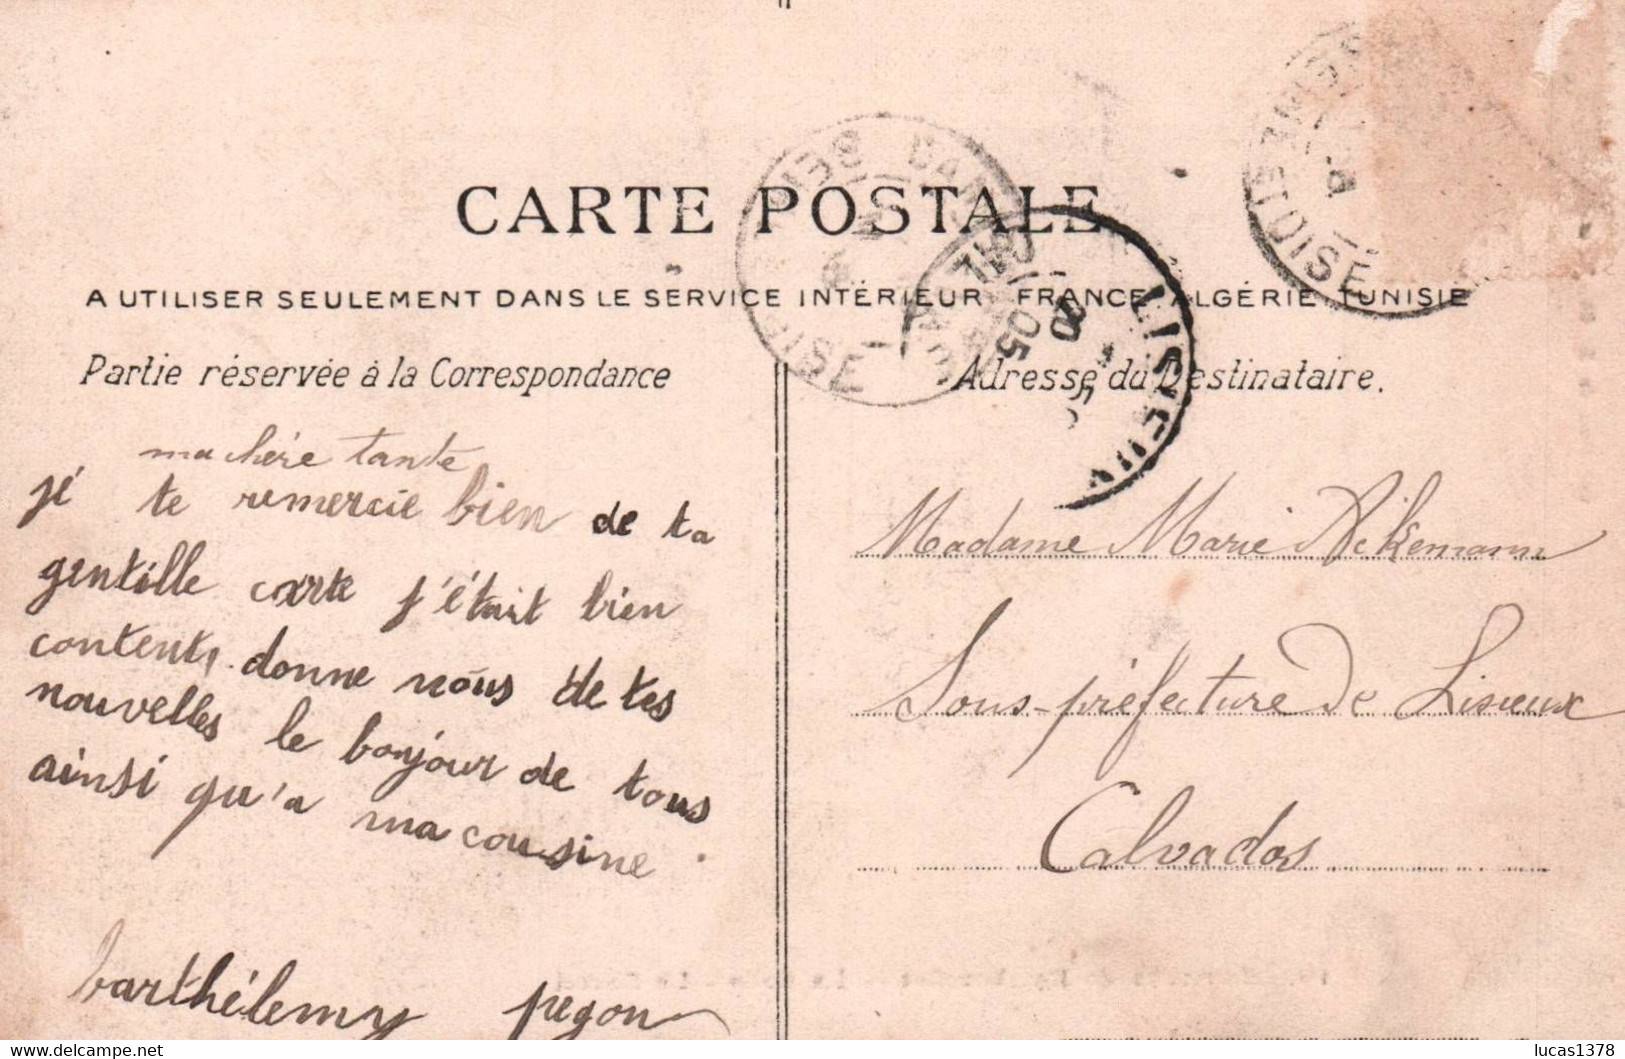 CARTE POSTALE
A UTILISER SEULEMENT DANS LE SERVICE INTÉRIEUR FRANCE ALGÉRIE TUNISIE
Partie réservée à la Correspondance
ma chére tante
je te remercie bien de ta
gentille carte j'était bien
content, donne nous de tes
nouvelles le bonjour de tous
ainsi qu'a ma cousine
barthélemy pegon
Adresse du Destinataire.
Madame Marie Ackemann
Sous-préfecture de Lisieux
Calvados
LISIEUX
05
OISE
ET OISE
www.delcampe.net
lucas1378